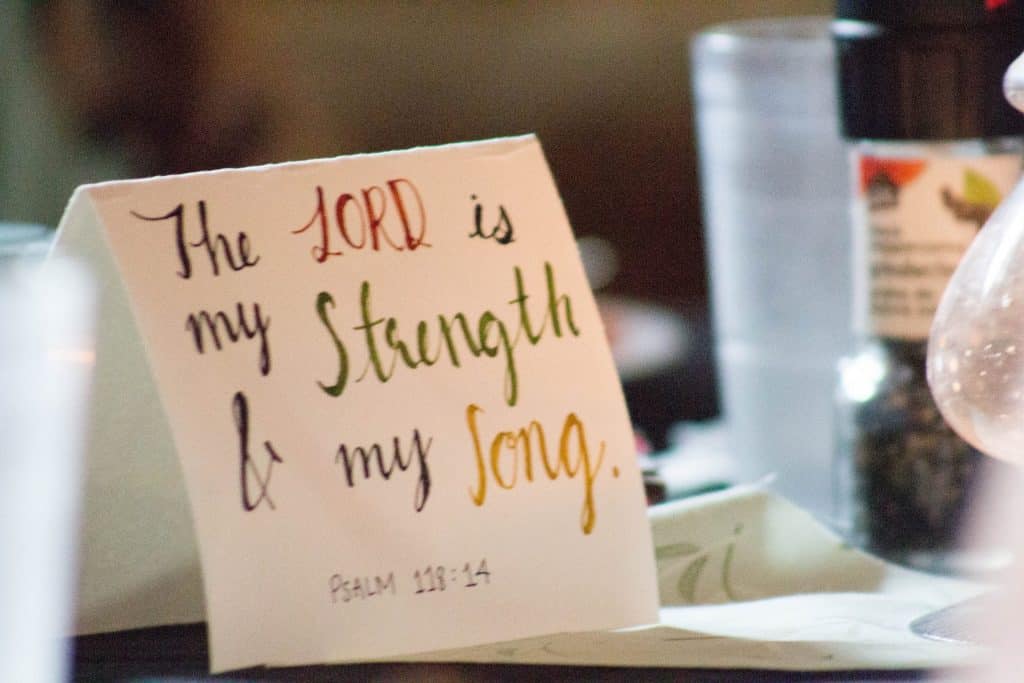 The LORD is
my Strength
& my Song.
PSALM 118:14